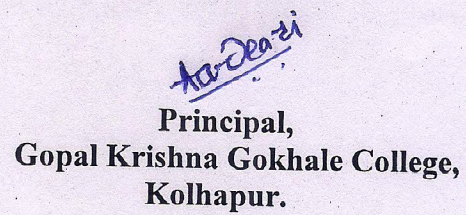 Principal,
Gopal Krishna Gokhale College,
Kolhapur.